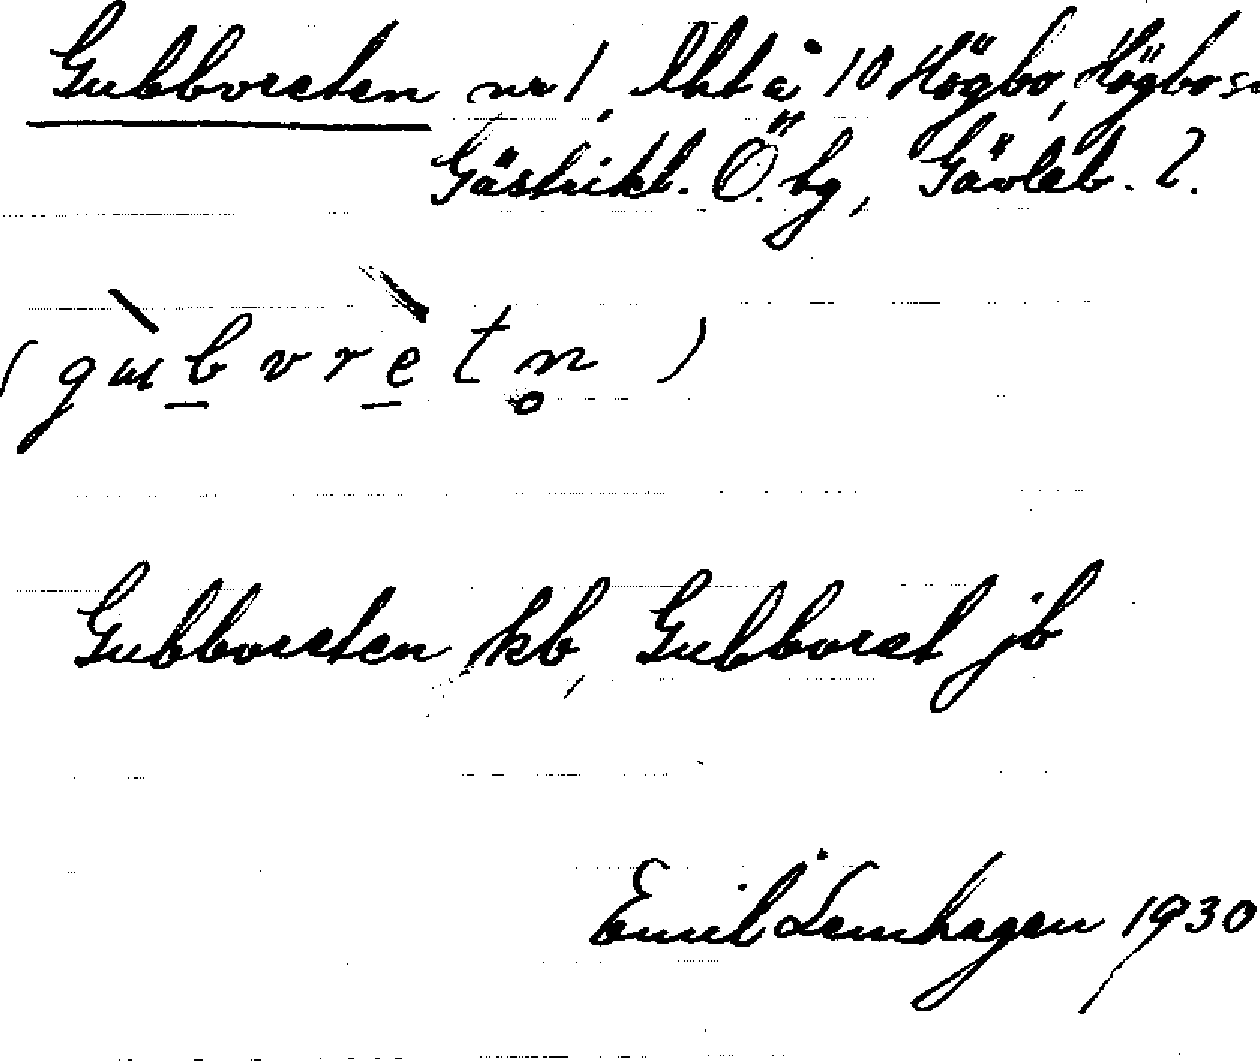 Gubboreten nr 1, lht å 10 Högbo, Högbo sn
Gästrikl. Ö. hg, Gävleb. l.
(gu̇̀b v r è t n̥)
Gubboreten kb, Gubboret jb
Emil Lemhagen 1930